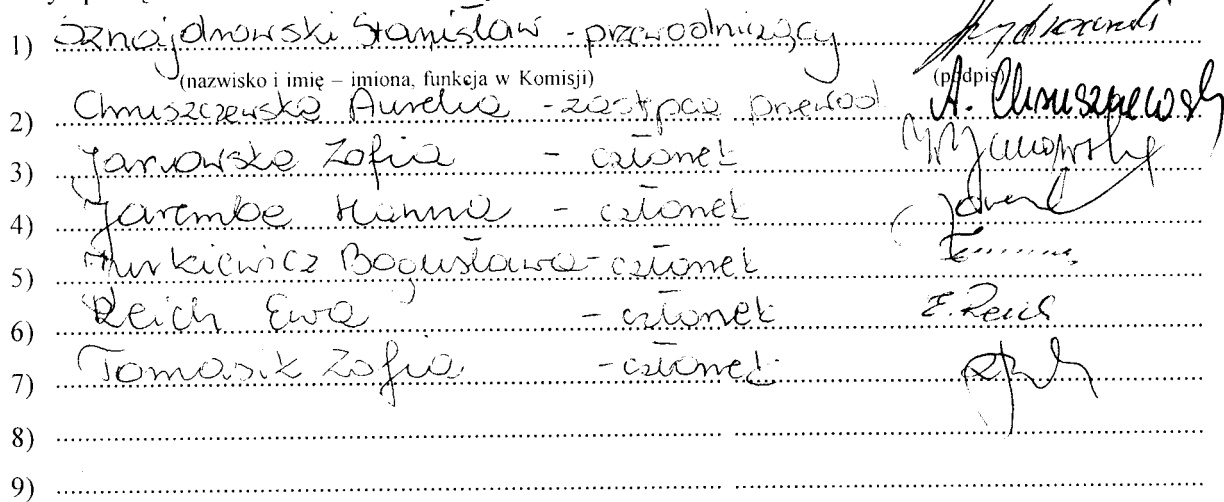 1) Sznajdrowski Stanisław - przewodniczący
(nazwisko i imię – imiona, funkcja w Komisji) (podpis)
2) Chruszczewska Aurelia - zastępca przewod A. Chruszczewska
3) Janowska Zofia - członek
4) Jaremba Hanna - członek
5) Bogusława - członek
6) Reich Ewa - członek E. Reich
7) Tomasik Zofia - członek
8)
9)